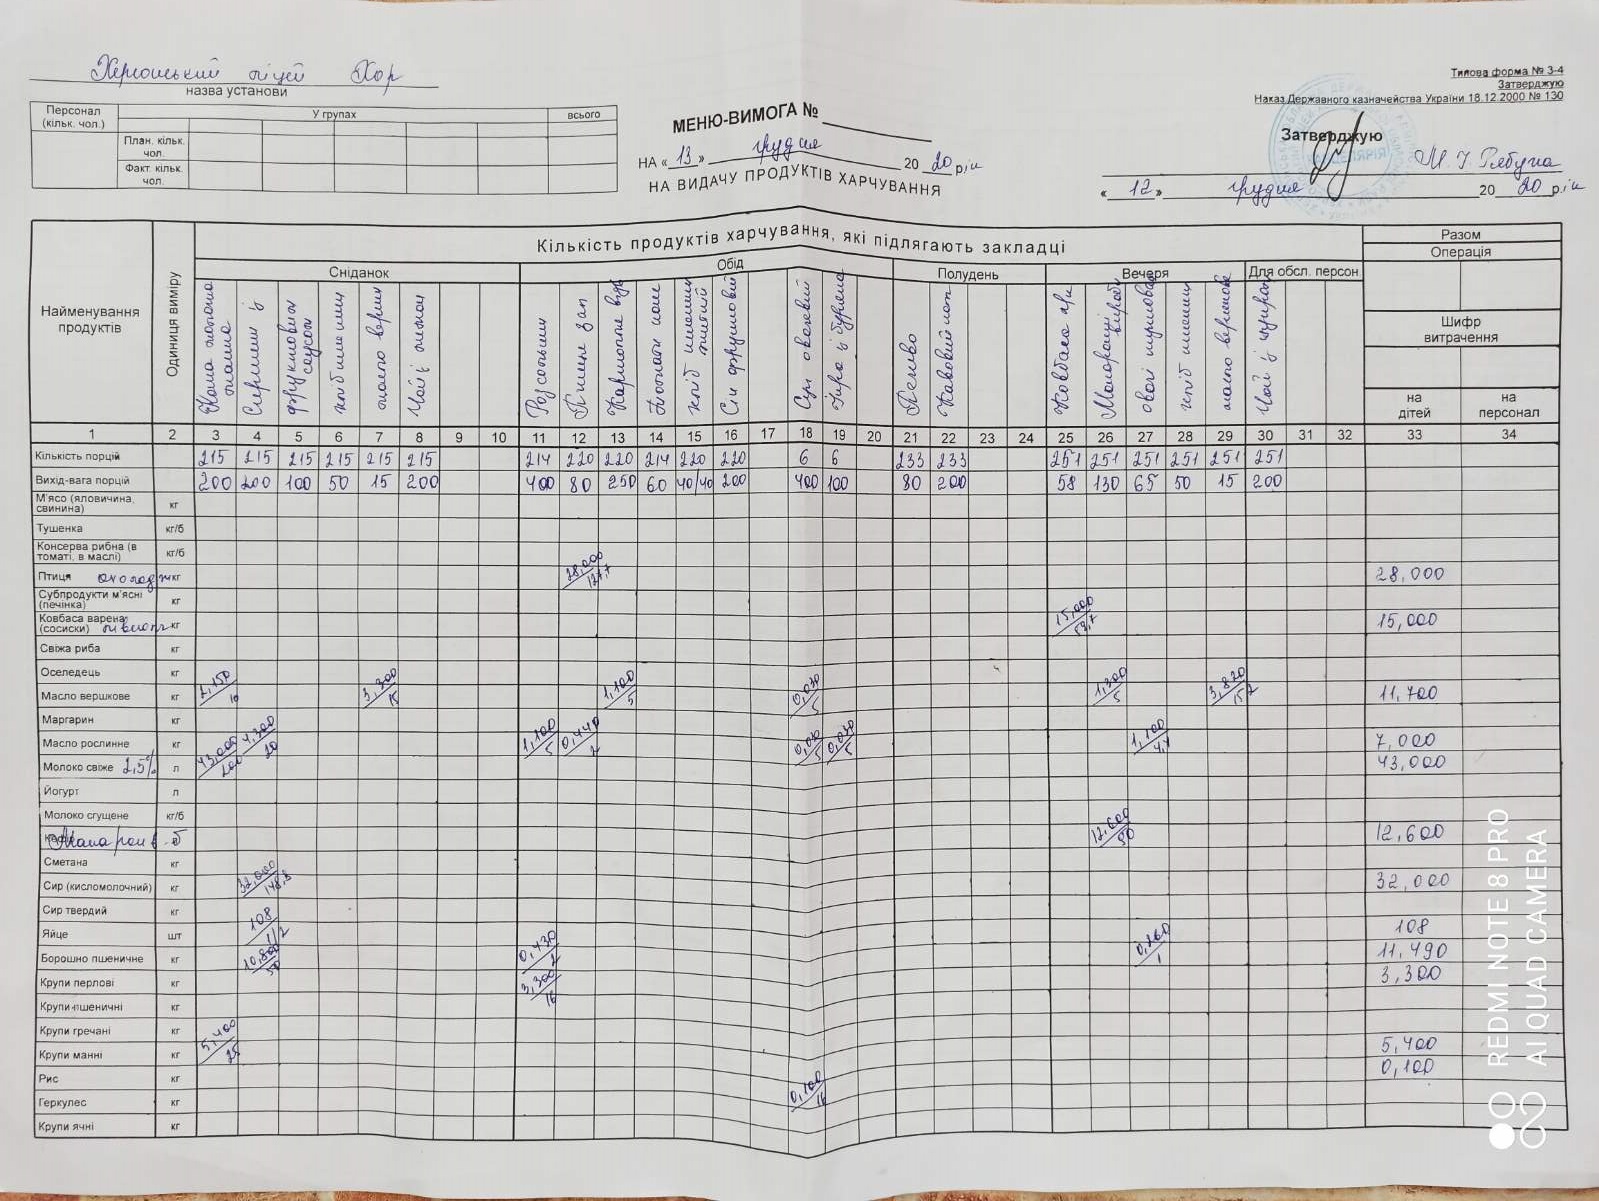 Херсонський ліцей Хор
назва установи
Типова форма № З-4
Затверджую
Наказ Державного казначейства України 18.12.2000 № 130
Персонал (кільк. чол.) У групах всього
План. кільк. чол.
Факт. кільк. чол.
МЕНЮ-ВИМОГА №
НА «13» грудня 2020 рік
НА ВИДАЧУ ПРОДУКТІВ ХАРЧУВАННЯ
Затверджую
«12» грудня 2020 рік
Найменування продуктів
Одиниця виміру
Кількість продуктів харчування, які підлягають закладці
Разом
Операція
Сніданок Обід Полудень Вечеря Для обсл. персон.
Шифр витрачення
на дітей на персонал
Каша молочна манна
фруктовим соусом
масло верш
Розсольник
Сік фруктовий
Суп овочевий
Печиво
Кавовий нап
Ковбаса
Макаронні вироби
масло вершкове
1 2 3 4 5 6 7 8 9 10 11 12 13 14 15 16 17 18 19 20 21 22 23 24 25 26 27 28 29 30 31 32 33 34
Кількість порцій 215 215 215 215 215 215 214 220 220 214 220 220 6 6 233 233 251 251 251 251 251 251
Вихід-вага порцій 200 200 100 50 15 200 400 80 250 60 40/40 200 400 100 80 200 58 130 65 50 15 200
М'ясо (яловичина, свинина) кг
Тушенка кг/б
Консерва рибна (в томаті, в маслі) кг/б
Птиця охолодж кг 28,000/127,7 28,000
Субпродукти м'ясні (печінка) кг
Ковбаса варена (сосиски) кг 15,000/59,7 15,000
Свіжа риба кг
Оселедець кг
Масло вершкове кг 2,150/10 3,300/15 1,100/5 0,030/5 1,300/5 3,820/15,2 11,700
Маргарин кг
Масло рослинне кг 4,300/20 1,100/5 0,440/2 0,030/5 0,030/5 1,100/4,4 7,000
Молоко свіже 2,5% л 43,000/200 43,000
Йогурт л
Молоко сгущене кг/б
Макарон в б 12,600/50 12,600
Сметана кг
Сир (кисломолочний) кг 32,000/148,8 32,000
Сир твердий кг
Яйце шт 108/1/2 108
Борошно пшеничне кг 10,800/50 0,430/2 0,260/1 11,490
Крупи перлові кг 3,300/16 3,300
Крупи пшеничні кг
Крупи гречані кг
Крупи манні кг 5,400/25 5,400
Рис кг 0,100
Геркулес кг 0,100/16
Крупи ячні кг
REDMI NOTE 8 PRO
AI QUAD CAMERA